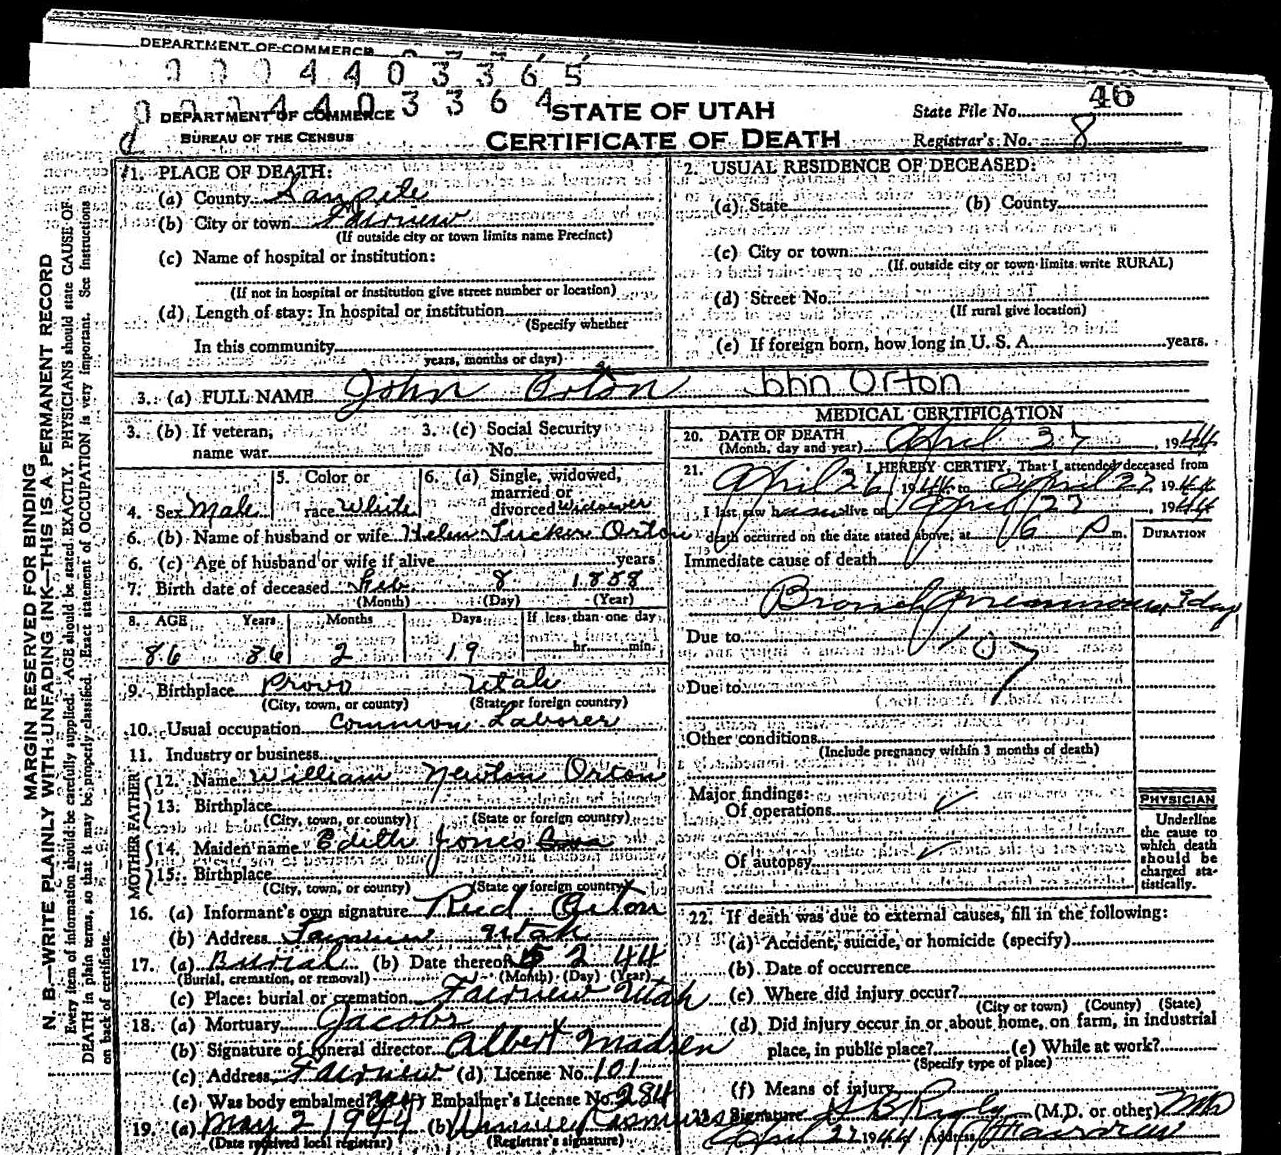 DEPARTMENT OF COMMERCE
0 0 0 4 4 0 3 3 6 5
0 0 0 4 4 0 3 3 6 4
DEPARTMENT OF COMMERCE
BUREAU OF THE CENSUS
STATE OF UTAH
CERTIFICATE OF DEATH
State File No. 46
Registrar's No. 8
MARGIN RESERVED FOR BINDING
N. B.—WRITE PLAINLY WITH UNFADING INK—THIS IS A PERMANENT RECORD
Every item of information should be carefully supplied. AGE should be stated EXACTLY. PHYSICIANS should state CAUSE OF
DEATH in plain terms, so that it may be properly classified. Exact statement of OCCUPATION is very important. See Instructions
on back of certificate.
1. PLACE OF DEATH:
(a) County Sanpete
(b) City or town Fairview
(If outside city or town limits name Precinct)
(c) Name of hospital or institution:
(If not in hospital or institution give street number or location)
(d) Length of stay: In hospital or institution
(Specify whether
In this community
years, months or days)
2. USUAL RESIDENCE OF DECEASED:
(a) State (b) County
(c) City or town
(If outside city or town limits write RURAL)
(d) Street No.
(If rural give location)
(e) If foreign born, how long in U. S. A. years.
3. (a) FULL NAME John Orton John Orton
3. (b) If veteran, name war
3. (c) Social Security No.
4. Sex Male
5. Color or race White
6. (a) Single, widowed, married or divorced Widower
6. (b) Name of husband or wife Helen Tucker Orton
6. (c) Age of husband or wife if alive years
7. Birth date of deceased Feb 8 1858
(Month) (Day) (Year)
8. AGE Years Months Days If less than one day
86 86 2 19 hr. min.
9. Birthplace Provo Utah
(City, town, or county) (State or foreign country)
10. Usual occupation Common Laborer
11. Industry or business
FATHER
12. Name William Newton Orton
13. Birthplace
(City, town, or county) (State or foreign country)
MOTHER
14. Maiden name Edith Jones
15. Birthplace
(City, town, or county) (State or foreign country)
16. (a) Informant's own signature Reed Orton
(b) Address Fairview Utah
17. (a) Burial (b) Date thereof 5 2 44
(Burial, cremation, or removal) (Month) (Day) (Year)
(c) Place: burial or cremation Fairview Utah
18. (a) Mortuary Jacobs
(b) Signature of funeral director Albert Madsen
(c) Address Fairview (d) License No. 101
(e) Was body embalmed? yes (f) Embalmer's License No. 284
19. (a) May 2 1944 (b) Rasmussen
(Date received local registrar) (Registrar's signature)
MEDICAL CERTIFICATION
20. DATE OF DEATH April 27, 1944
(Month, day and year)
21. I HEREBY CERTIFY, That I attended deceased from
April 26, 1944 to April 27, 1944
I last saw him alive on April 27, 1944
death occurred on the date stated above, at 6 P m.
DURATION
Immediate cause of death
Bronch pneumonia 3 days
107
Due to
Due to
Other conditions
(Include pregnancy within 3 months of death)
Major findings:
Of operations ✓
Of autopsy ✓
PHYSICIAN
Underline
the cause to
which death
should be
charged sta-
tistically.
22. If death was due to external causes, fill in the following:
(a) Accident, suicide, or homicide (specify)
(b) Date of occurrence
(c) Where did injury occur?
(City or town) (County) (State)
(d) Did injury occur in or about home, on farm, in industrial
place, in public place? (e) While at work?
(Specify type of place)
(f) Means of injury
23. Signature (M.D. or other) MD
April 1944 Address Fairview